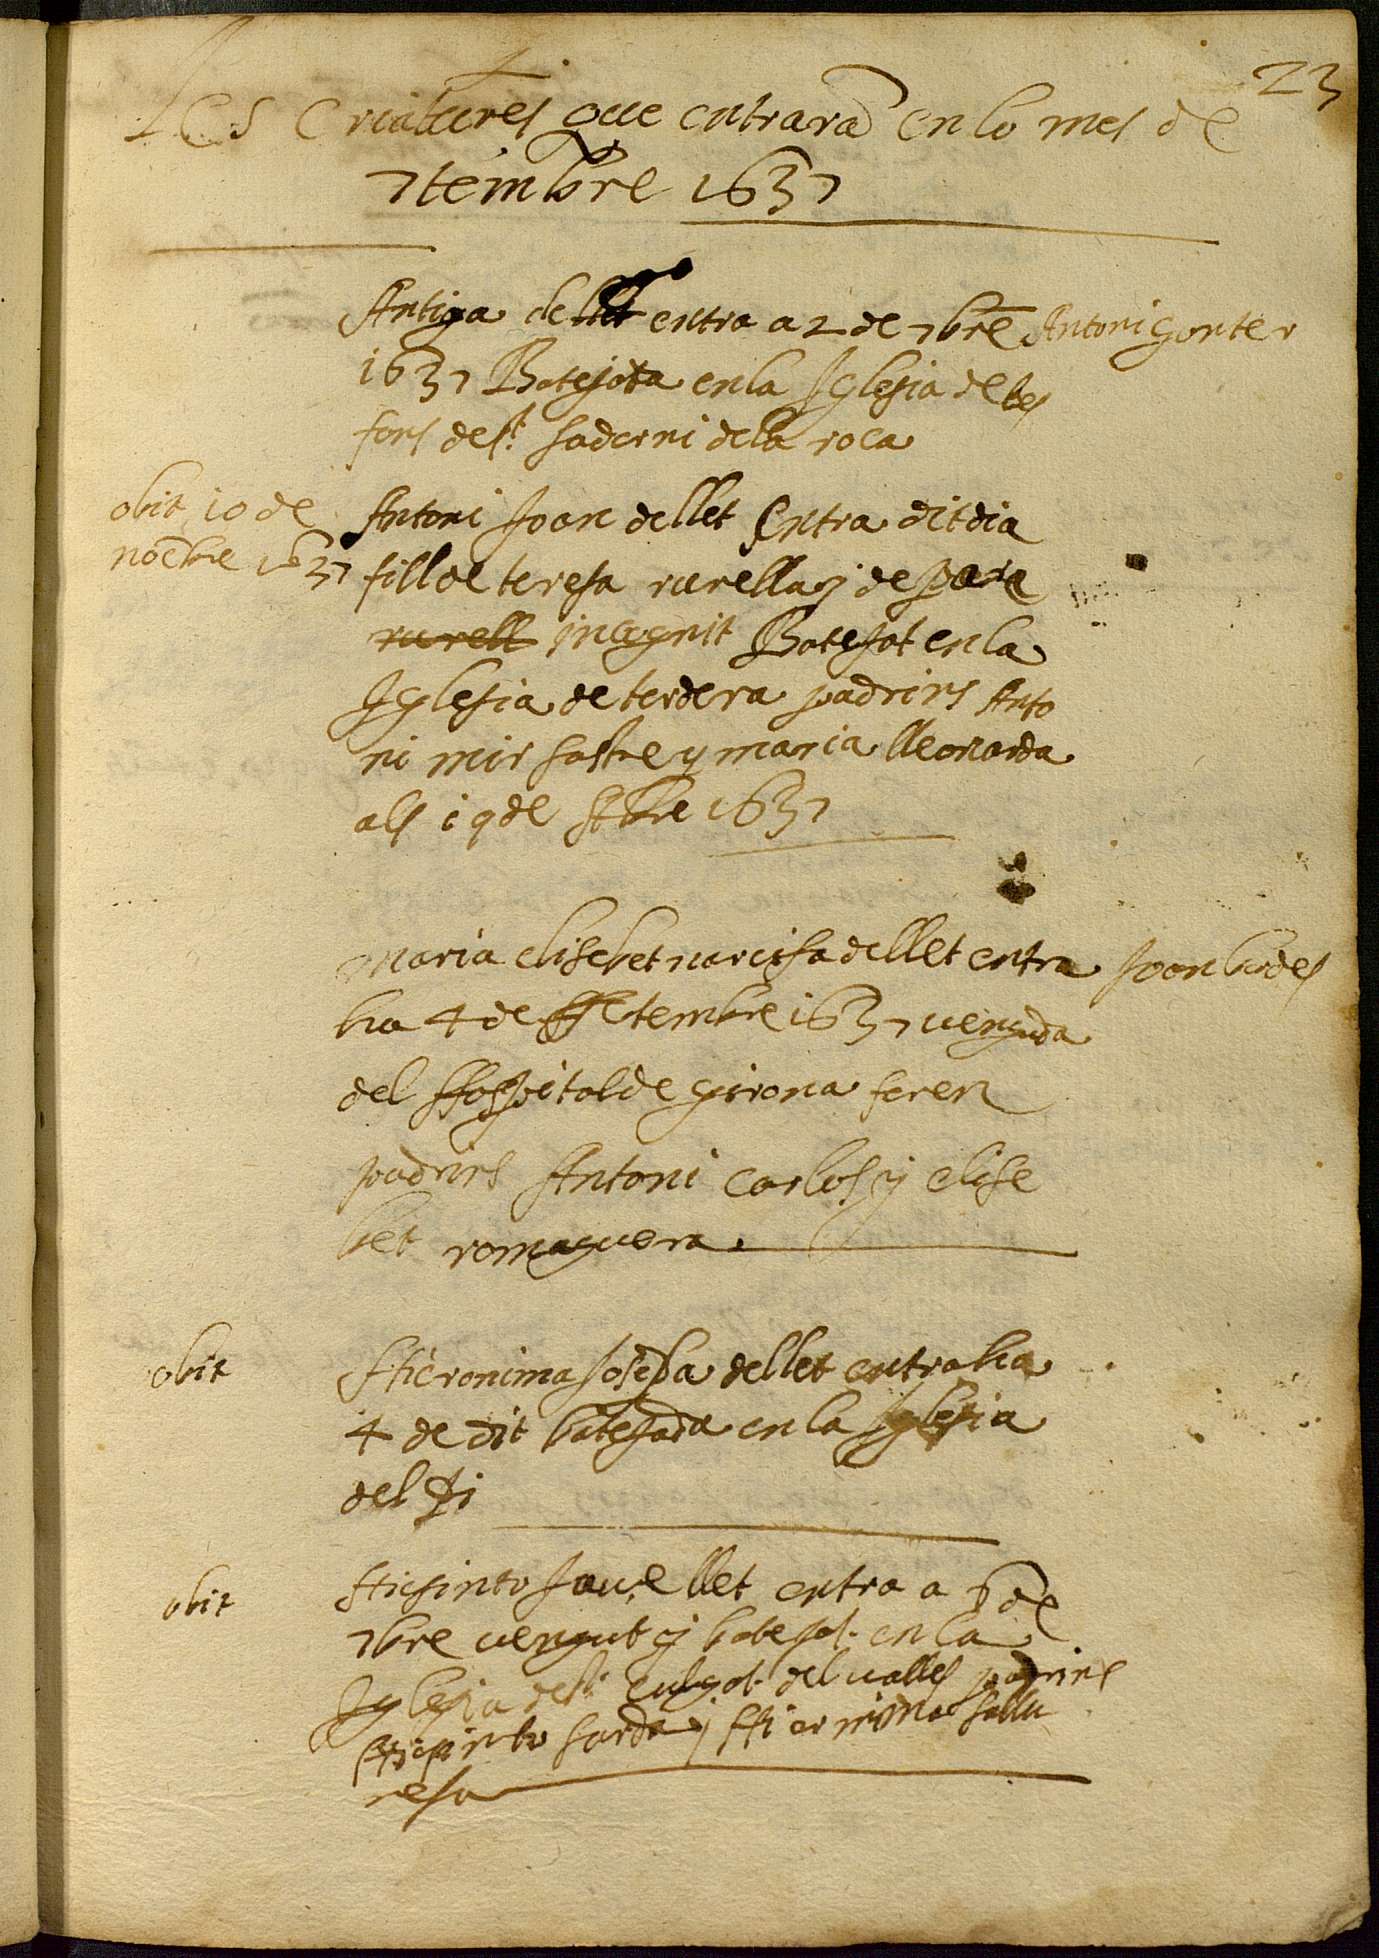 23
Les Criatures que entraran en lo mes de
7tembre 1637
Antiga de llet entra a 2 de 7bre Antoni gonter
1637 Batejada en la Iglesia de les
fons de St. sadorni de la roca
obit 10 de
noēbre 1637
Antoni Joan de llet Entra dit dia
fill de teresa rurella y de para
rurell incognit Batejat en la
Iglesia de terdera padrins Anto
ni mir sastre y maria lleonarda
als 19 de stbre 1637
Maria elisebet narcisa de llet entra Joan
ha 4 de setembre 1637 venguda
del Hospital de girona foren
padrins Antoni Carlos y elise
bet romaguera
obit
Hieronima Josepa de llet entra ha
4 de dit batejada en la Iglesia
del Pi
obit
Hiesinto Jau de llet entra a 6 de
7bre vengut y batejat en la
Iglesia de St. culgat del valles padrins
Hiesinto sarda y Hieronima sallu
resa